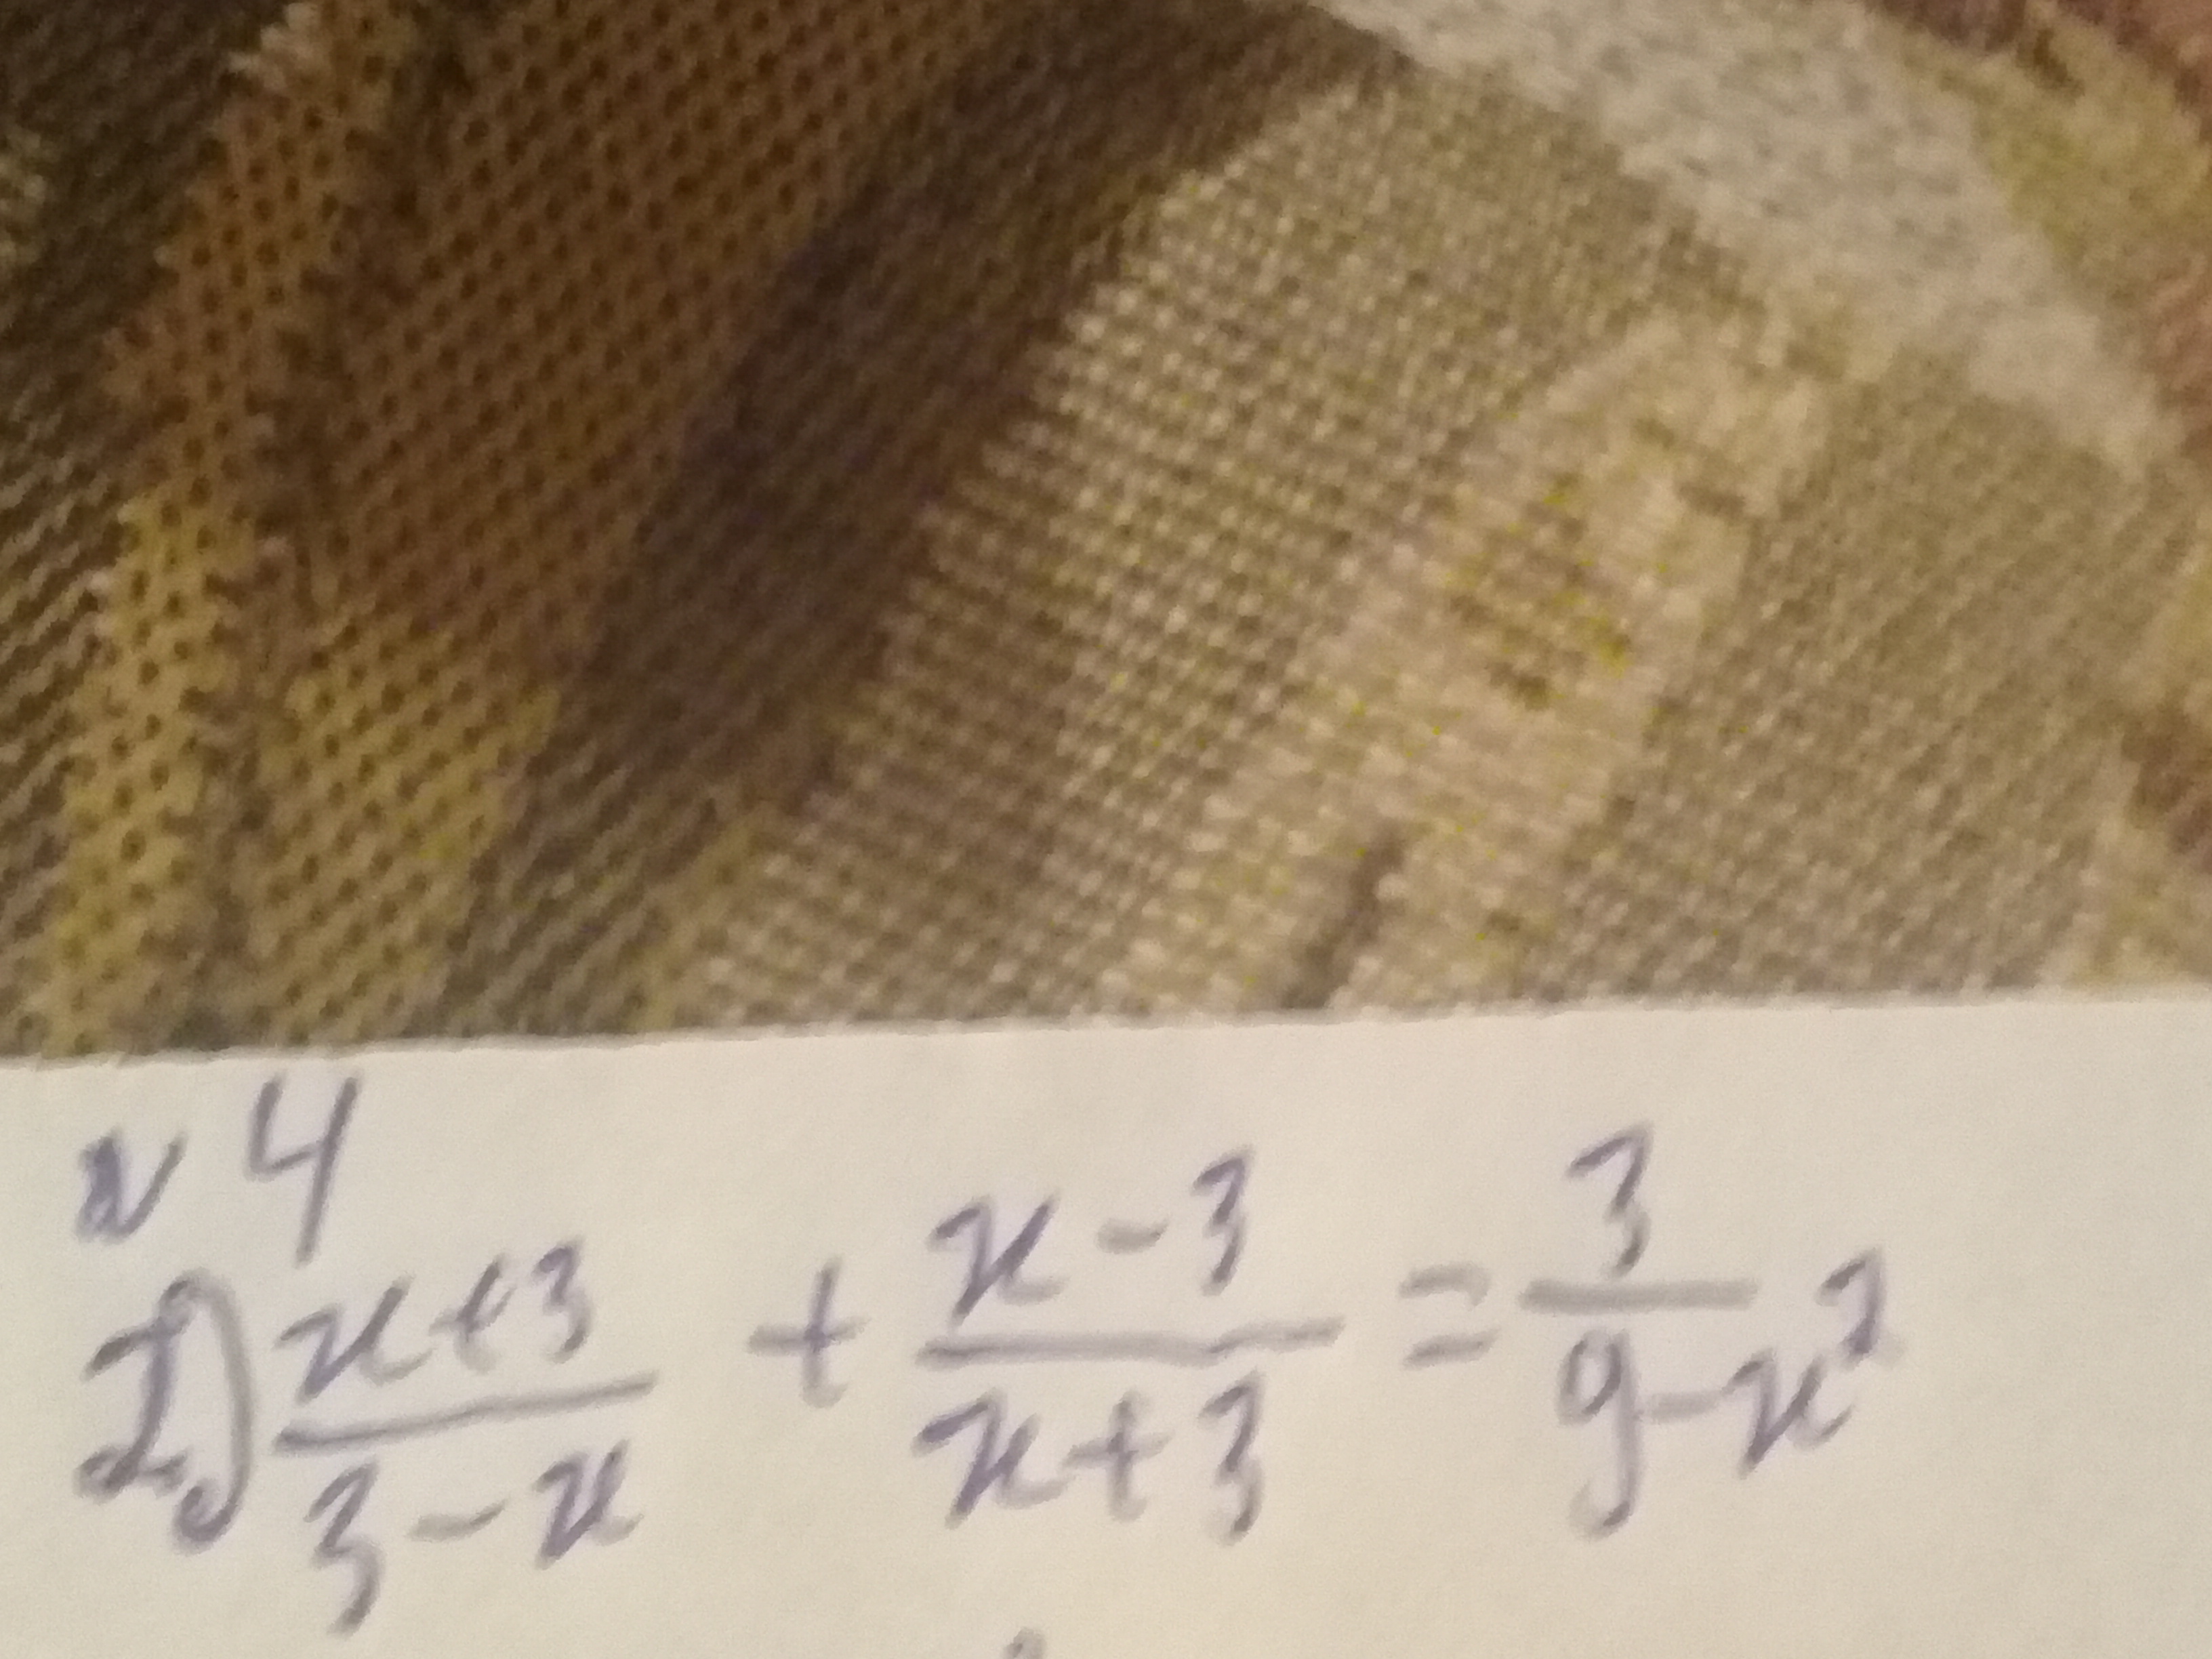 № 4
1) (x+3)/(3-x) + (x-3)/(x+3) = 3/(9-x²)